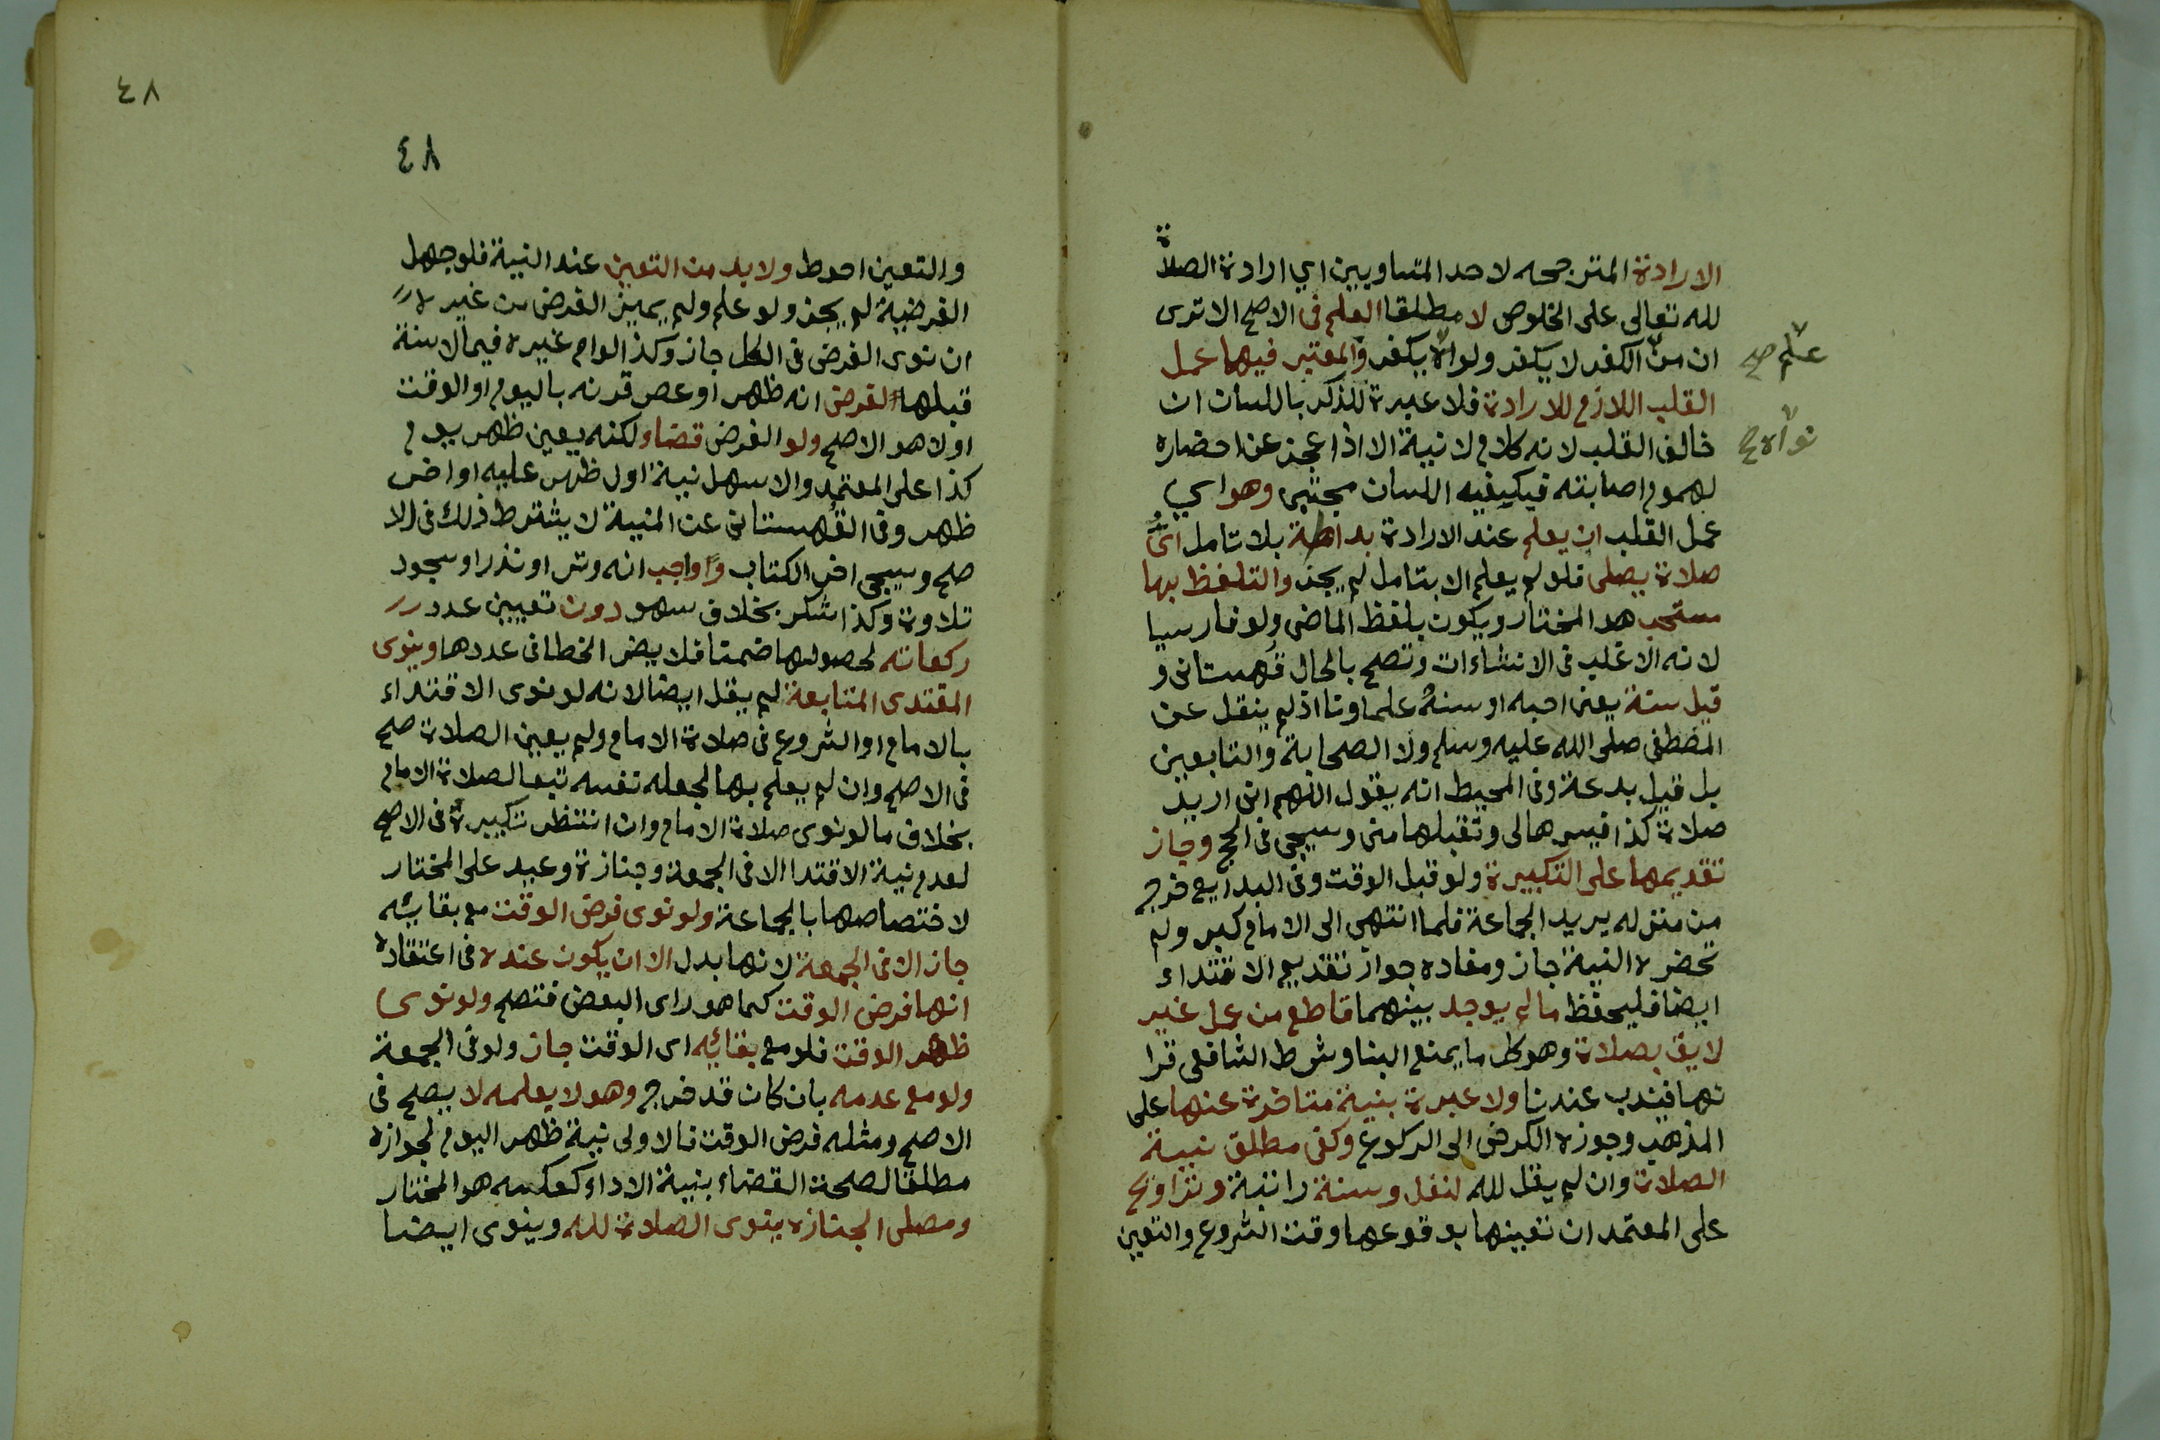 الارادة المترجحه لاحد المتساويين اي ارادة الصلاة
لله تعالى على الخلوص لا مطلقا العلم فى الاصح الا ترى
ان من الكفر لا يكفر ولو يكفر والمعتبر فيها عمل
علم صح
القلب اللازم للارادة فلا عبرة للذكر باللسان ان
خالف القلب لانه كلام لا نية الا اذا عجز عن احضاره
نواه صح
لهموم اصابته فيكيفيه اللسان مجتبى وهو اي
عمل القلب ان يعلم عند الارادة بداهة بلا تامل اىَّ
صلاة يصلى فلو لم يعلم الا بتامل لم يجز والتلفظ بها
مستحب هو المختار ويكون بلفظ الماضى ولو فارسيا
لانه الاغلب فى الانشاءات وتصح بالحال قُهستانى و
قيل سنة يعنى احبه او سنهُ علماونا اذ لم ينقل عن
المصطفى صلى الله عليه وسلم ولا الصحابة والتابعين
بل قيل بدعة وفى المحيط انه يقول اللهم انى اريد
صلاة كذا فيسرها لى وتقبلها منى وسيجى فى الحج وجاز
تقديمها على التكبيرة ولو قبل الوقت وفى البدايع خرج
من منزله يريد الجماعة فلما انتهى الى الامام كبر ولم
تحضره النية جاز ومفاده جواز تقديم الاقتداء
ايضا فليحفظ ما لم يوجد بينهما قاطع من عمل غير
لايق بصلاة وهو كل ما يمنع البنا وشرط الشافعى قرا
نها فيندب عندنا ولا عبرة بنية متاخرة عنها على
المذهب وجوزه الكرخى الى الركوع وكفى مطلق نية
الصلاة وان لم يقل لله لنفل وسنة راتبة وتراويح
على المعتمد ان تعينها بوقوعها وقت الشروع والتعين
٤٨
٤٨
والتعين احوط ولا بد من التعين عند النية فلو جهل
الفرضية لم يجز ولو علم ولم يميز الفرض من غيره
ان نوى الفرض فى الكل جاز وكذا لو ام غيره فيما لا سنة
قبلها لفرض انه ظهر او عصر قرنه باليوم او الوقت
اولا هو الاصح ولو الفرض قضاء لكنه يعين ظهر يوم
كذا على المعتمد والاسهل نية اول ظهر عليه او اخر
ظهر وفى القُهستانى عن المنية لا يشترط ذلك فى الا
صح وسيجى اخر الكتاب وواجب انه وتر او نذر او سجود
تلاوة وكذا شكر بخلاف سهو دون تعيين عدد
ركعاته لحصولها ضمنا فلا يضر الخطا فى عددها وينوى
المقتدى المتابعة لم يقل ايضا لانه لو نوى الاقتداء
بالامام او الشروع فى صلاة الامام ولم يعين الصلاة صح
فى الاصح وان لم يعلم بها لجعله نفسه تبعا لصلاة الامام
بخلاف ما لو نوى صلاة الامام وان انتظر تكبيرة فى الاصح
لعدم نية الاقتدا الا فى الجمعة وجنازة وعيد على المختار
لاختصاصها بالجماعة ولو نوى فرض الوقت مع بقائه
جاز الا فى الجمعة لانها بدل الا ان يكون عنده فى اعتقاده
انها فرض الوقت كما هو راى البعض فتصح ولو نوى
ظهر الوقت فلو مع بقائه اى الوقت جاز ولو فى الجمعة
ولو مع عدمه بان كان قد خرج وهو لا يعلمه لا يصح فى
الاصح ومثله فرض الوقت فالاولى نية ظهر اليوم لجوازه
مطلقا لصحة القضاء بنية الاداء كعكسه هو المختار
ومصلى الجنازه ينوى الصلاة لله وينوى ايضا